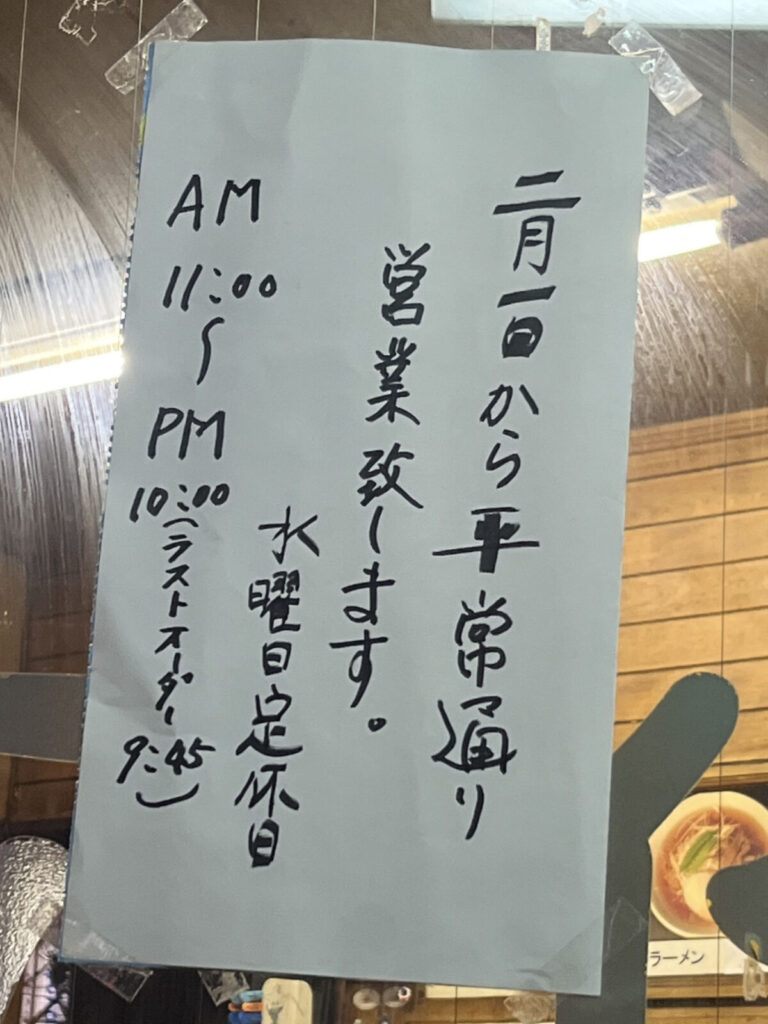 二月一日から平常通り
営業致します。
水曜日定休日
AM
11:00
〜
PM
10:00
(ラストオーダー
9:45)
ラーメン